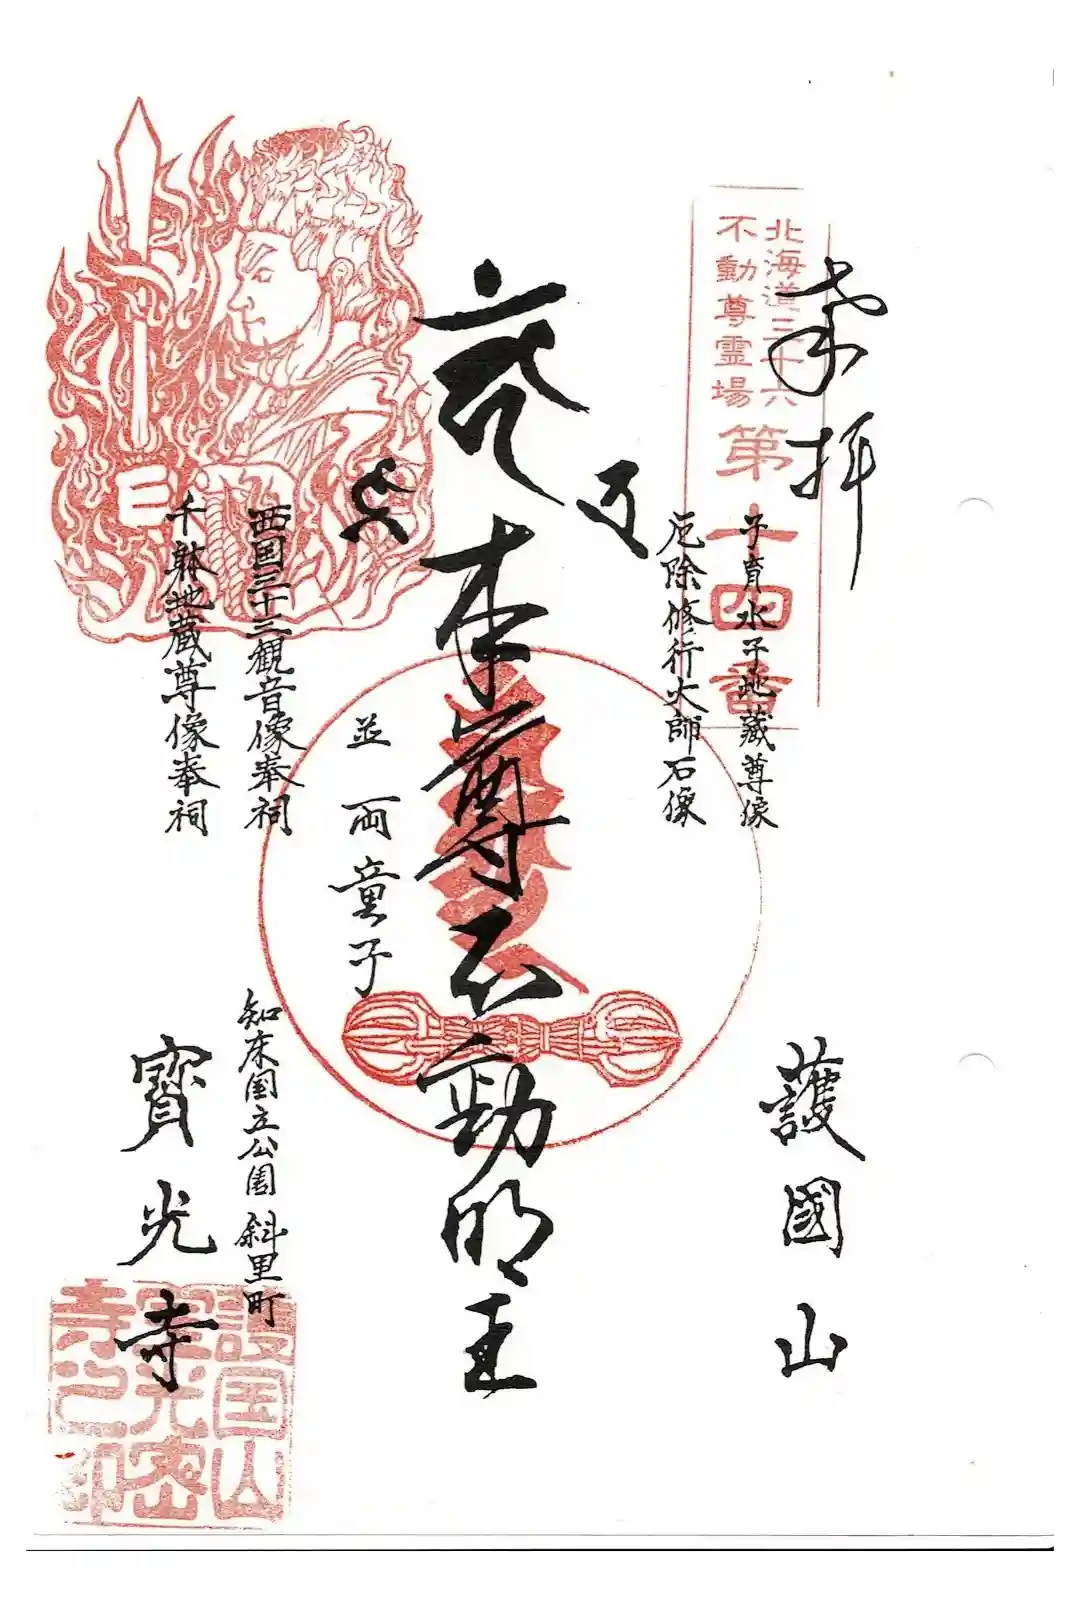 奉拝
北海道三十六
不動尊霊場
第十四番
子育水子地蔵尊像
厄除修行大師石像
本尊不動明王
並両童子
西国三十三観音像奉祠
千躰地蔵尊像奉祠
護國山
知床国立公園 斜里町
寳光寺
護国山
宝光密
寺之印